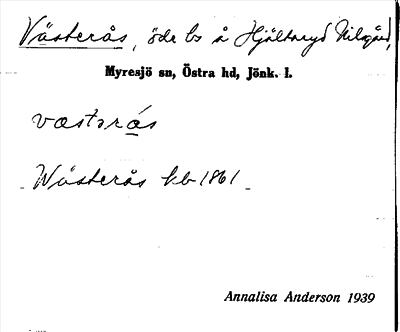 Västerås, öde ls å Hjältaryd Nilsgård,
Myresjö sn, Östra hd, Jönk. l.
væstərås
Wästerås kb 1861
Annalisa Anderson 1939